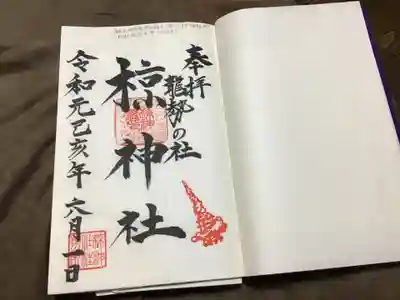 奉拝
龍勢の社
椋神社
令和元己亥年 六月一日